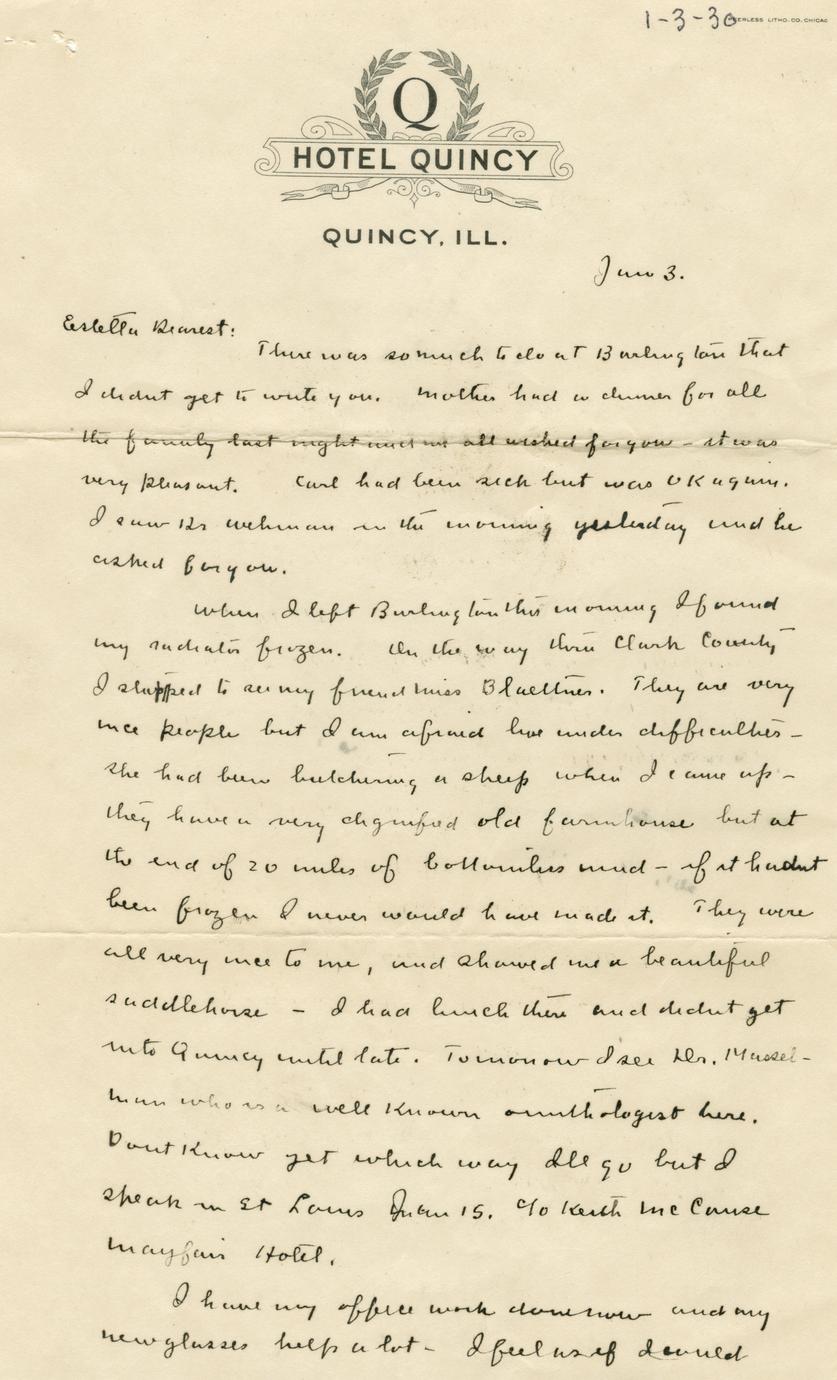 1-3-30
PEERLESS LITHO. CO. CHICAGO
Q
HOTEL QUINCY
QUINCY, ILL.
Jan 3.
Estella Dearest:
There was so much to do at Burlington that
I didnt get to write you. Mother had a dinner for all
the family last night and we all wished for you – it was
very pleasant. Carl had been sick but was OK again.
I saw Dr Wehman in the morning yesterday and he
asked for you.
When I left Burlington this morning I found
my radiator frozen. On the way thru Clark County
I stopped to see my friend Miss Blaettner. They are very
nice people but I am afraid live under difficulties –
she had been butchering a sheep when I came up –
they have a very dignified old farmhouse but at
the end of 20 miles of bottomless mud – if it hadnt
been frozen I never would have made it. They were
all very nice to me, and showed me a beautiful
saddlehorse – I had lunch there and didnt get
into Quincy until late. Tomorrow I see Dr. Mussel-
man who is a well known ornithologist here.
Dont know yet which way Ill go but I
speak in St Louis Jan 15. c/o Keith McCanse
Mayfair Hotel.
I have my office work done now and my
new glasses help a lot – I feel as if I could